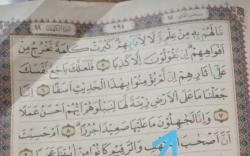 مَّا لَهُم بِهِۦ مِنْ عِلْمٍ وَلَا لِـَٔابَآئِهِمْ كَبُرَتْ كَلِمَةً تَخْرُجُ مِنْ
أَفْوَٰهِهِمْ إِن يَقُولُونَ إِلَّا كَذِبًا ٥ فَلَعَلَّكَ بَٰخِعٌ نَّفْسَكَ
عَلَىٰٓ ءَاثَٰرِهِمْ إِن لَّمْ يُؤْمِنُوا۟ بِهَٰذَا ٱلْحَدِيثِ أَسَفًا ٦ إِنَّا
جَعَلْنَا مَا عَلَى ٱلْأَرْضِ زِينَةً لَّهَا لِنَبْلُوَهُمْ أَيُّهُمْ أَحْسَنُ عَمَلًا
٧ وَإِنَّا لَجَٰعِلُونَ مَا عَلَيْهَا صَعِيدًا جُرُزًا ٨ أَمْ حَسِبْتَ
أَنَّ أَصْحَٰبَ ٱلْكَهْفِ وَٱلرَّقِيمِ كَانُوا۟ مِنْ ءَايَٰتِنَا عَجَبًا